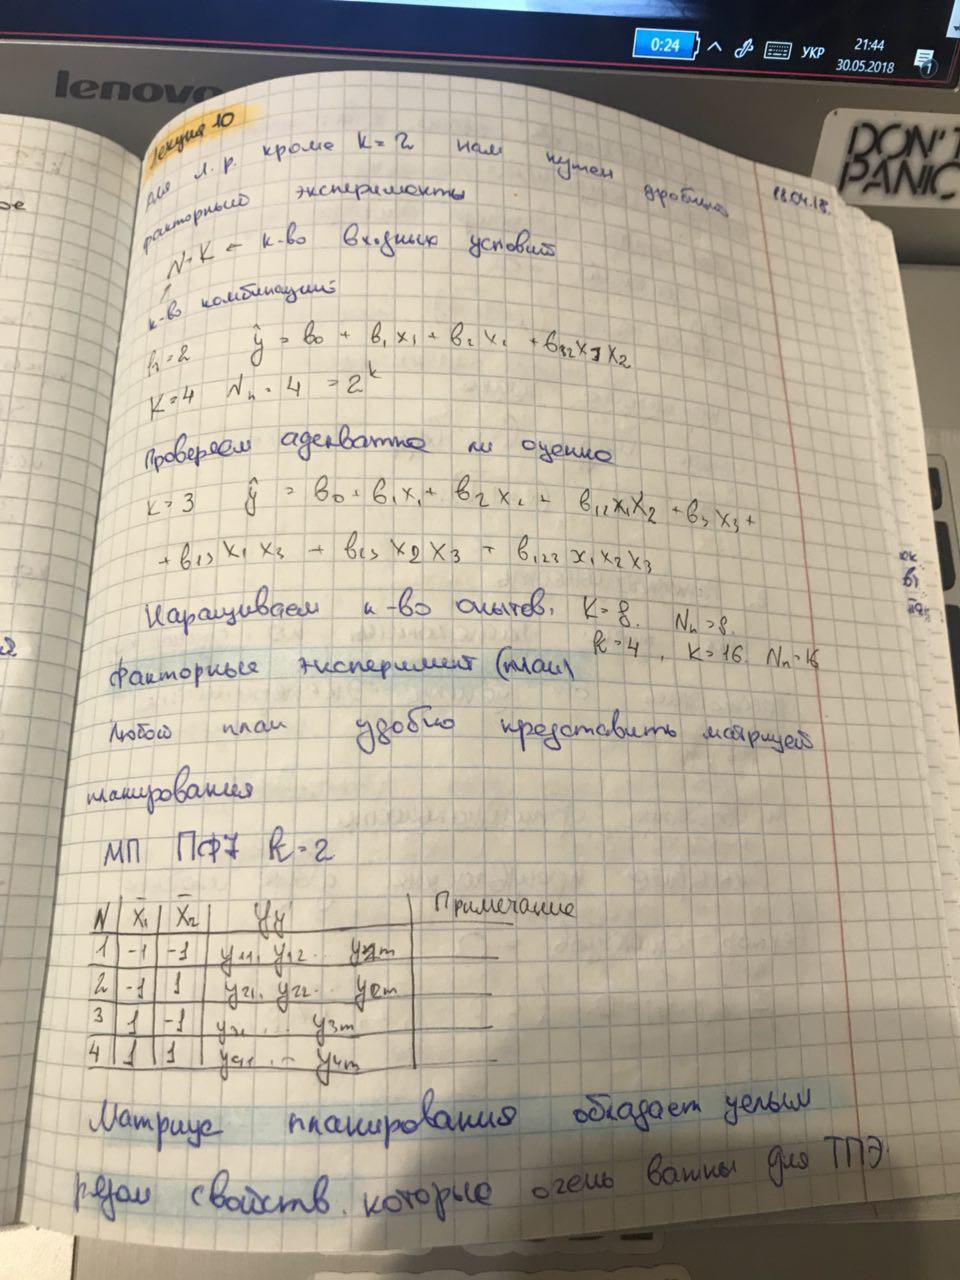 0:24
УКР
21:44
30.05.2018
1
lenovo
DON'T
PANIC
Лекция 10
18.04.18.
для л. р. кроме k = 2 нам нужен дробный
факторный эксперименты
N·K ← к-во входных условий
к-во комбинаций
k = 2 ŷ = b₀ + b₁x₁ + b₂x₂ + b₁₂x₁x₂
K = 4 Nₙ = 4 = 2ᵏ
Проверяем адекватна ли оценка
k = 3 ŷ = b₀ + b₁x₁ + b₂x₂ + b₁₂x₁x₂ + b₃x₃ +
+ b₁₃x₁x₃ + b₂₃x₂x₃ + b₁₂₃x₁x₂x₃
Наращиваем к-во опытов. K = 8. Nₙ = 8.
k = 4, K = 16. Nₙ = 16
Факторные эксперимент (план)
Любой план удобно представить матрицей
планирования
МП ПФЭ k = 2
N x̄₁ x̄₂ Примечание
1 -1 -1 y₁₁, y₁₂ ...
2 -1 1 y₂₁, y₂₂ ... y₂ₘ
3 1 -1 y₃₁ ... y₃ₘ
4 1 1 y₄₁ ... y₄ₘ
Матрица планирования обладает целым
рядом свойств, которые очень важны для ТПЭ.